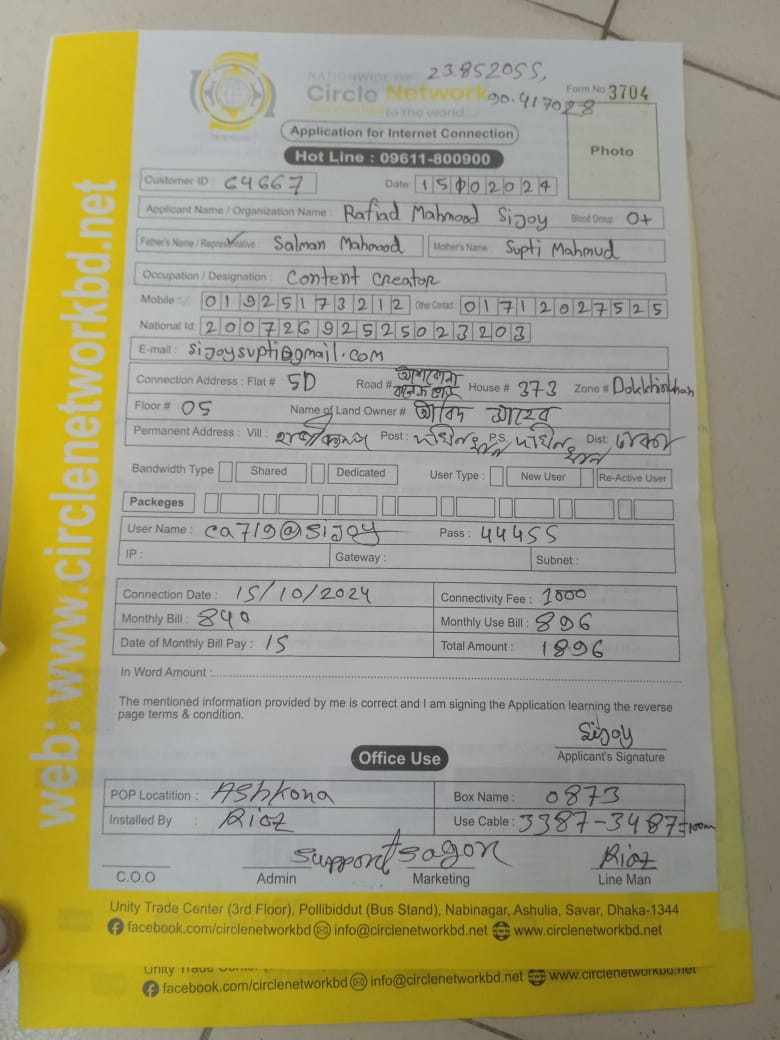 23.852055,
NATIONWIDE ISP
Circle Network
90.417028
Form No 3704
Connected
to the world...
Application for Internet Connection
Hot Line : 09611-800900
Photo
Customer ID : C4667
Date 15 02024
Applicant Name / Organization Name : Rafiad Mahmood Sijoy Blood Group : O+
Father's Name / Representative : Salman Mahmood Mother's Name : Supti Mahmud
Occupation / Designation : Content creator
Mobile : 01925173212 Other Contact : 01712027525
National Id: 20072692525023203
E-mail : sijoysupti@gmail.com
Connection Address : Flat # 5D Road # House # 373 Zone # Dokkhinkhan
Floor # 05 Name of Land Owner # আবিদ
Permanent Address : Vill : Post : P.S. Dist: ঢাকা
Bandwidth Type Shared Dedicated User Type : New User Re-Active User
Packeges
User Name : ca719@sijoy Pass : 44455
IP : Gateway : Subnet :
Connection Date : 15/10/2024 Connectivity Fee : 1000
Monthly Bill : 840 Monthly Use Bill : 896
Date of Monthly Bill Pay : 15 Total Amount : 1896
In Word Amount :
The mentioned information provided by me is correct and I am signing the Application learning the reverse
page terms & condition.
Sijoy
Applicant's Signature
Office Use
POP Locatition : Ashkona Box Name : 0873
Installed By : Riaz Use Cable : 3387-3487=100m
support sagor Riaz
C.O.O Admin Marketing Line Man
Unity Trade Center (3rd Floor), Pollibiddut (Bus Stand), Nabinagar, Ashulia, Savar, Dhaka-1344
facebook.com/circlenetworkbd info@circlenetworkbd.net www.circlenetworkbd.net
Unity Trade
facebook.com/circlenetworkbd info@circlenetworkbd.net www.circlenetworkbd.net
web: www.circlenetworkbd.net